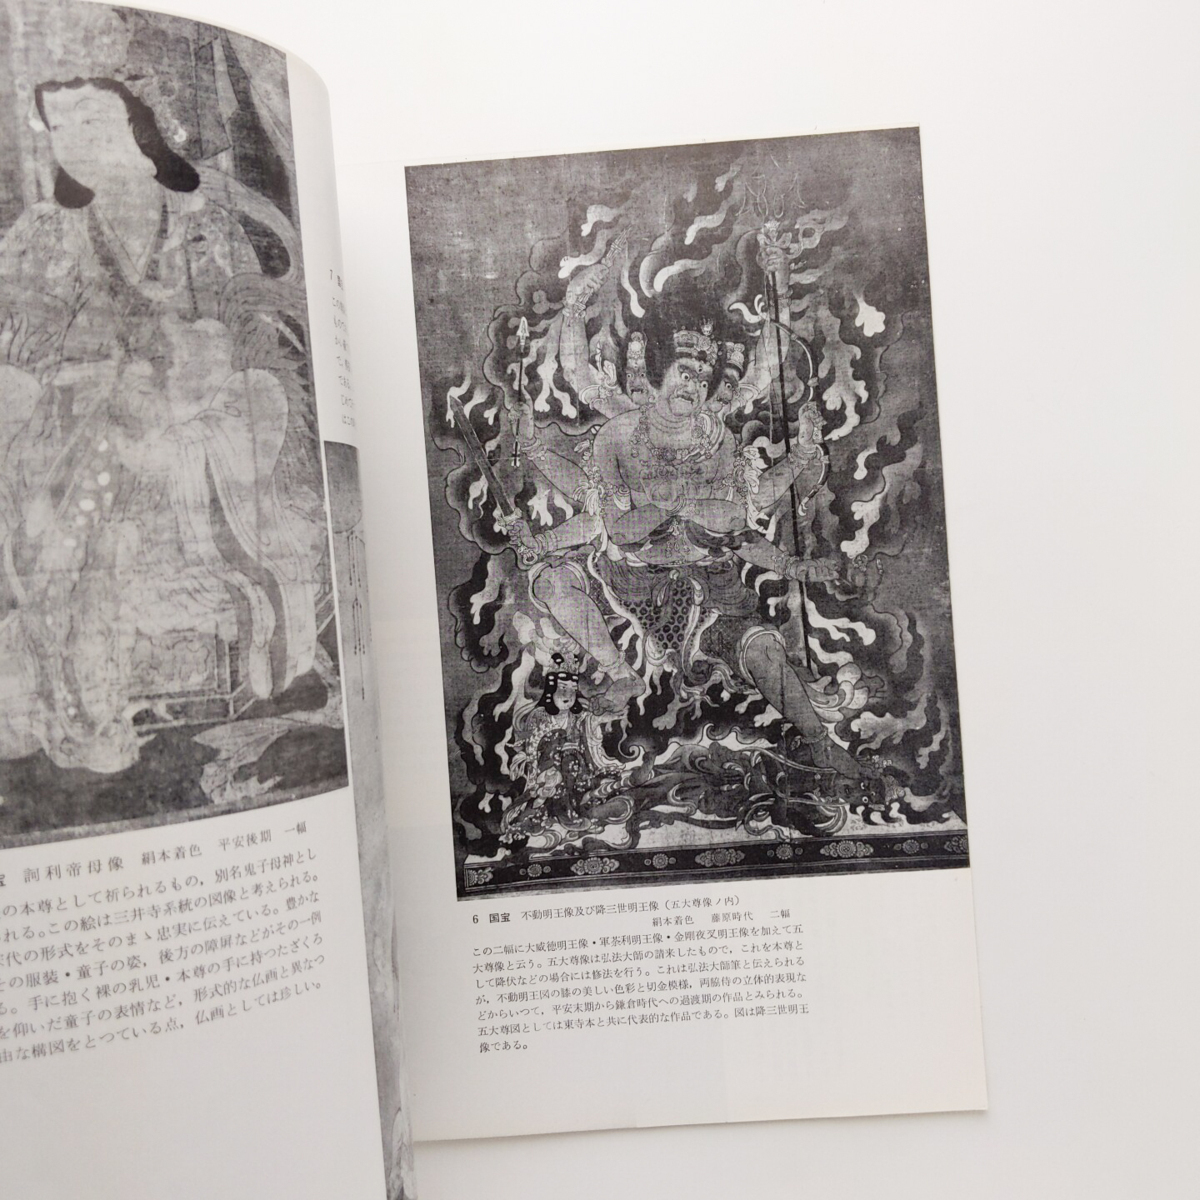 宝 訶利帝母像 絹本着色 平安後期 一幅
の本尊として祈られるもの，別名鬼子母神とし
れる。この絵は三井寺系統の図像と考えられる。
代の形式をそのまゝ忠実に伝えている。豊かな
の服装・童子の姿，後方の障屏などがその一例
る。手に抱く裸の乳児・本尊の手に持つたざくろ
を仰いだ童子の表情など，形式的な仏画と異なつ
由な構図をとつている点，仏画としては珍しい。
6 国宝 不動明王像及び降三世明王像（五大尊像ノ内）
絹本着色 藤原時代 二幅
この二幅に大威徳明王像・軍荼利明王像・金剛夜叉明王像を加えて五
大尊像と云う。五大尊像は弘法大師の請来したもので，これを本尊と
して降伏などの場合には修法を行う。これは弘法大師筆と伝えられる
が，不動明王図の膝の美しい色彩と切金模様，両脇侍の立体的表現な
どからいつて，平安末期から鎌倉時代への過渡期の作品とみられる。
五大尊図としては東寺本と共に代表的な作品である。図は降三世明王
像である。